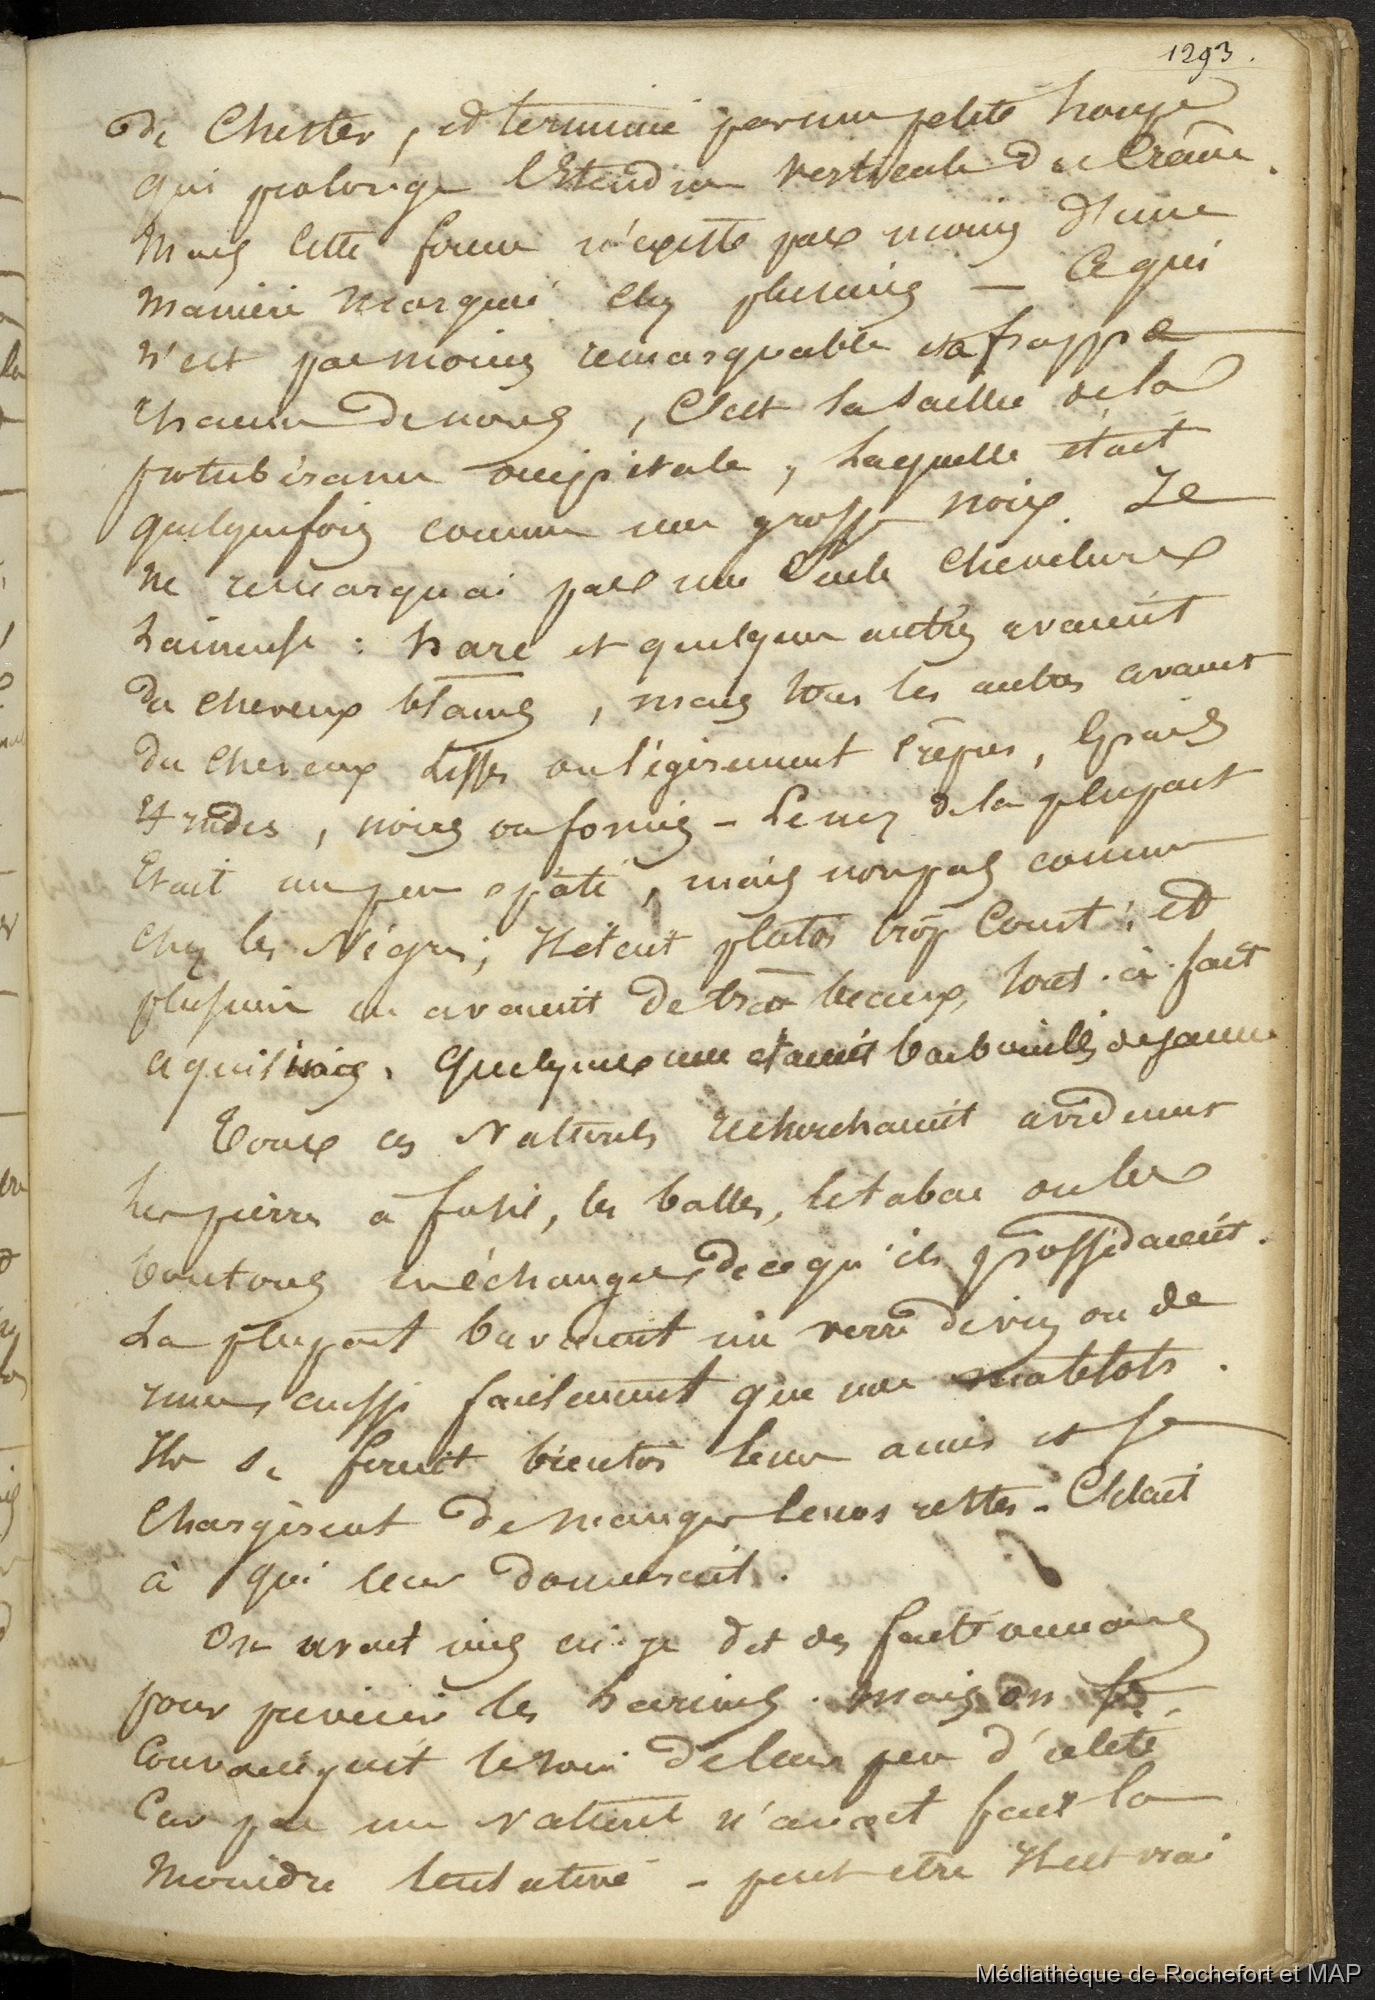 1293.
de Chester, et terminé par une petite houpe
qui prolonge l'Etendue verticale de le Crâne.
Mais Cette forme n'existe pas moins d'une
manière marquée chez plusieurs — Ce qui
n'est pas moins remarquable et a frappé
chacun de nous, C'est la saillie de la
protubérance occipitale, Laquelle était
quelquefois comme une grosse noix. Je
ne remarquai pas une Seule chevelure
Laineuse : hare et quelques autres avaient
des cheveux blancs, mais tous les autres avaient
des cheveux Lisses ou légèrement Crêpus, Epais
et rudes, noirs ou foncés - Le nez de la plupart
Etait un peu épâté, mais non pas comme
chez les Nègres; Il était plutôt trop Court; et
plusieurs en avaient de très beaux, tout-à-fait
aquilins. Quelques uns etaient barbouillés de jaune
Tous ces Naturels recherchaient avidement
Les pierres à fusil, les balles, le tabac ou les
boutons en échange de ce qu'ils possédaient.
La plupart buvaient un verre de vin ou de
rum aussi facilement que nos matelots.
Ils se firent bientôt leurs amis et se
Chargèrent de manger leurs restes - C'était
à qui leur donnerait.
On avait mis ai-je dit des factionnaires
pour prévenir les larcins. mais on se
Convainquit le soir de leur peu d'utilité
Car pas un naturel n'avait fait la
Moindre tentative - peut être Il est vrai
Médiathèque de Rochefort et MAP